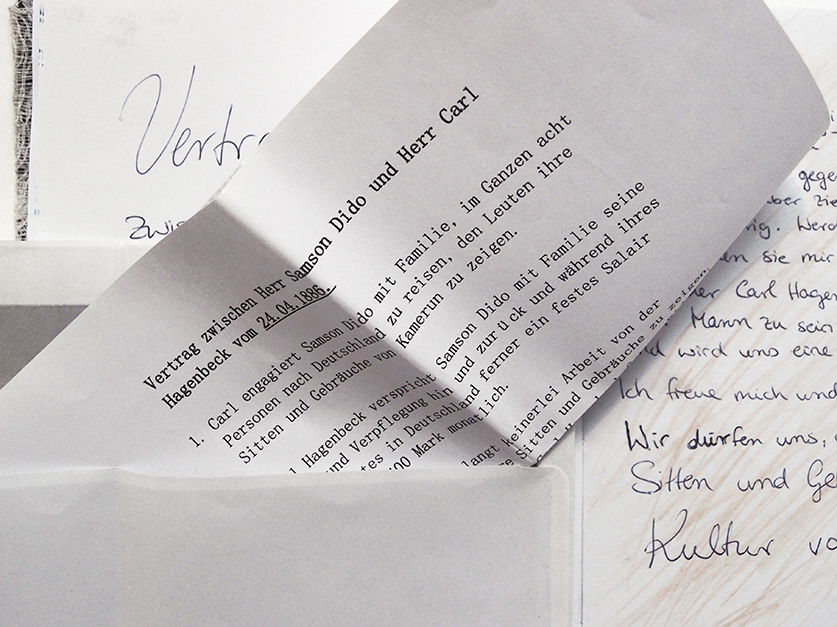 Vertr
Zwis
Vertrag zwischen Herr Samson Dido und Herr Carl
Hagenbeck vom 24.04.1886.
1. Carl engagiert Samson Dido mit Familie, im Ganzen acht
Personen nach Deutschland zu reisen, den Leuten ihre
Sitten und Gebräuche von Kamerun zu zeigen.
l Hagenbeck verspricht Samson Dido mit Familie seine
und Verpflegung hin und zurück und während ihres
tes in Deutschland ferner ein festes Salair
00 Mark monatlich.
langt keinerlei Arbeit von der
re Sitten und Gebräuche zu zeigen.
gege
ber Zie
rig. Werd
en sie mir
er Carl Hagen
Mann zu sein
d wird uns eine
Ich freue mich und
Wir dürfen uns,
Sitten und Ge
Kultur vo